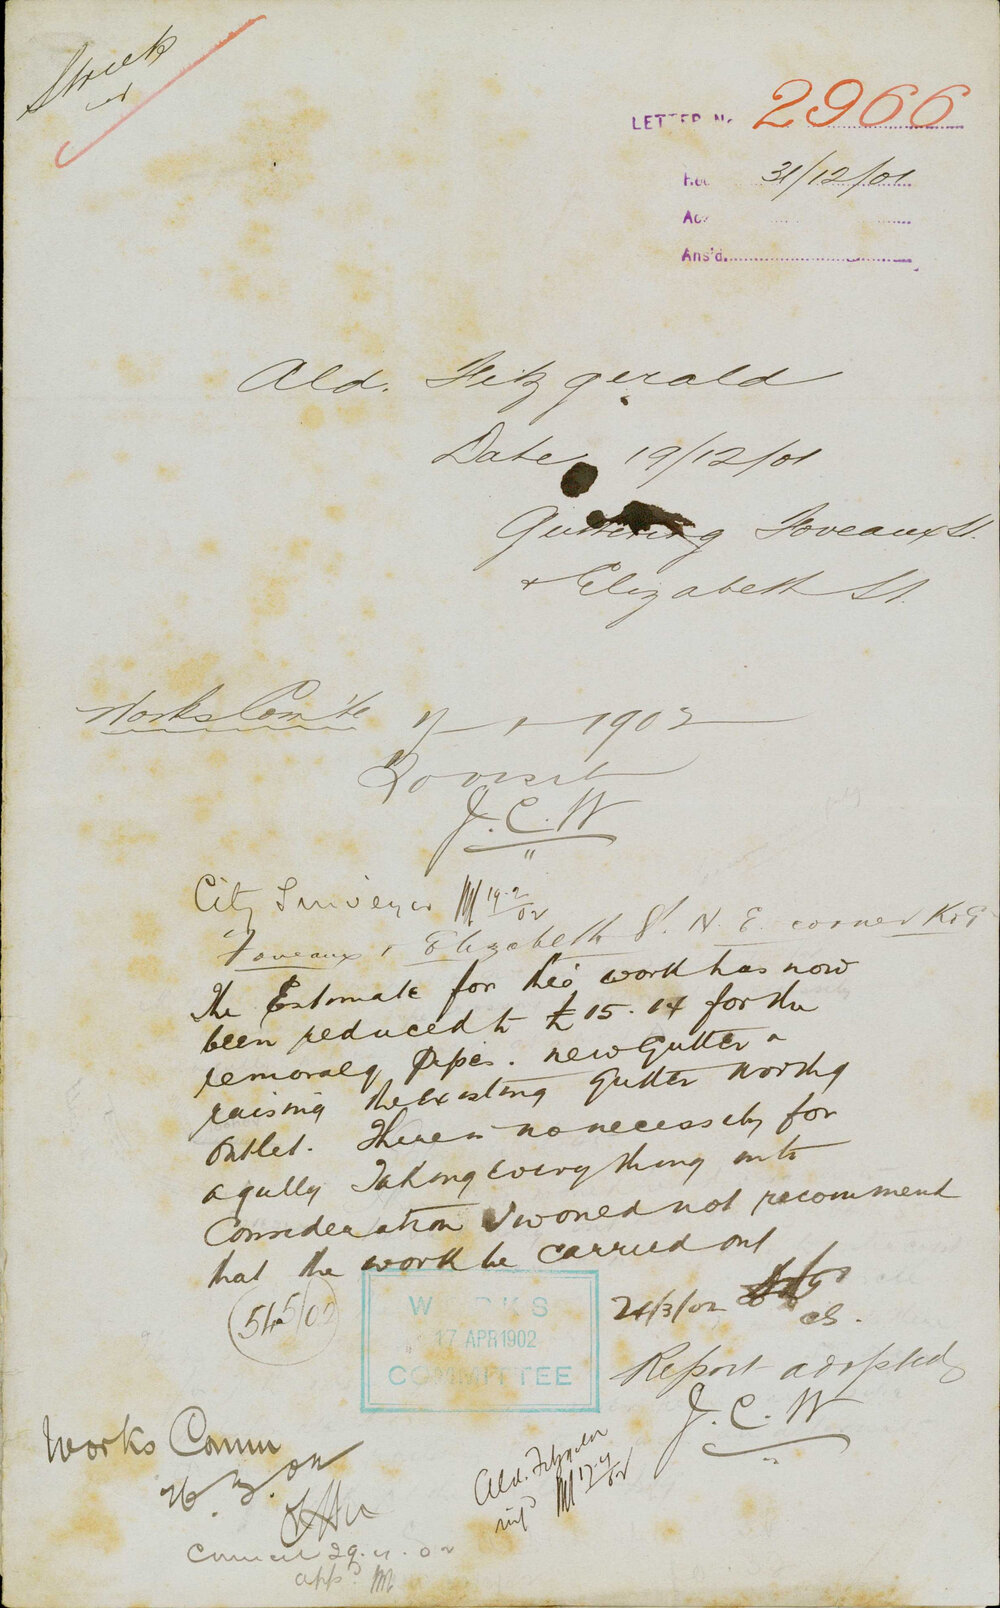 Street
LETTER No 2966
Rec 31/12/01
Ac
Ans'd.
Ald. Fitzgerald
Date 19/12/01
Guttering Foveaux St.
+ Elizabeth St.
Works Com'te 1902
To visit
J. C. W
City Surveyor M 19.2/02
Foveaux & Elizabeth St. N. E. corner
The Estimate for this work has now
been reduced to £15.14 for the
removal of pipes. new Gutter &
raising the existing Gutter North of
outlet. There is no necessity for
a gully Taking everything into
Consideration I would not recommend
that the work be carried out
545/02
WORKS
17 APR 1902
COMMITTEE
24/3/02
CS.
Report adopted
J. C. W
Works Comm
26.3.02
Ald. Fitzgerald
inf'd M 17.4/02
Council 29.4.02
app'd M